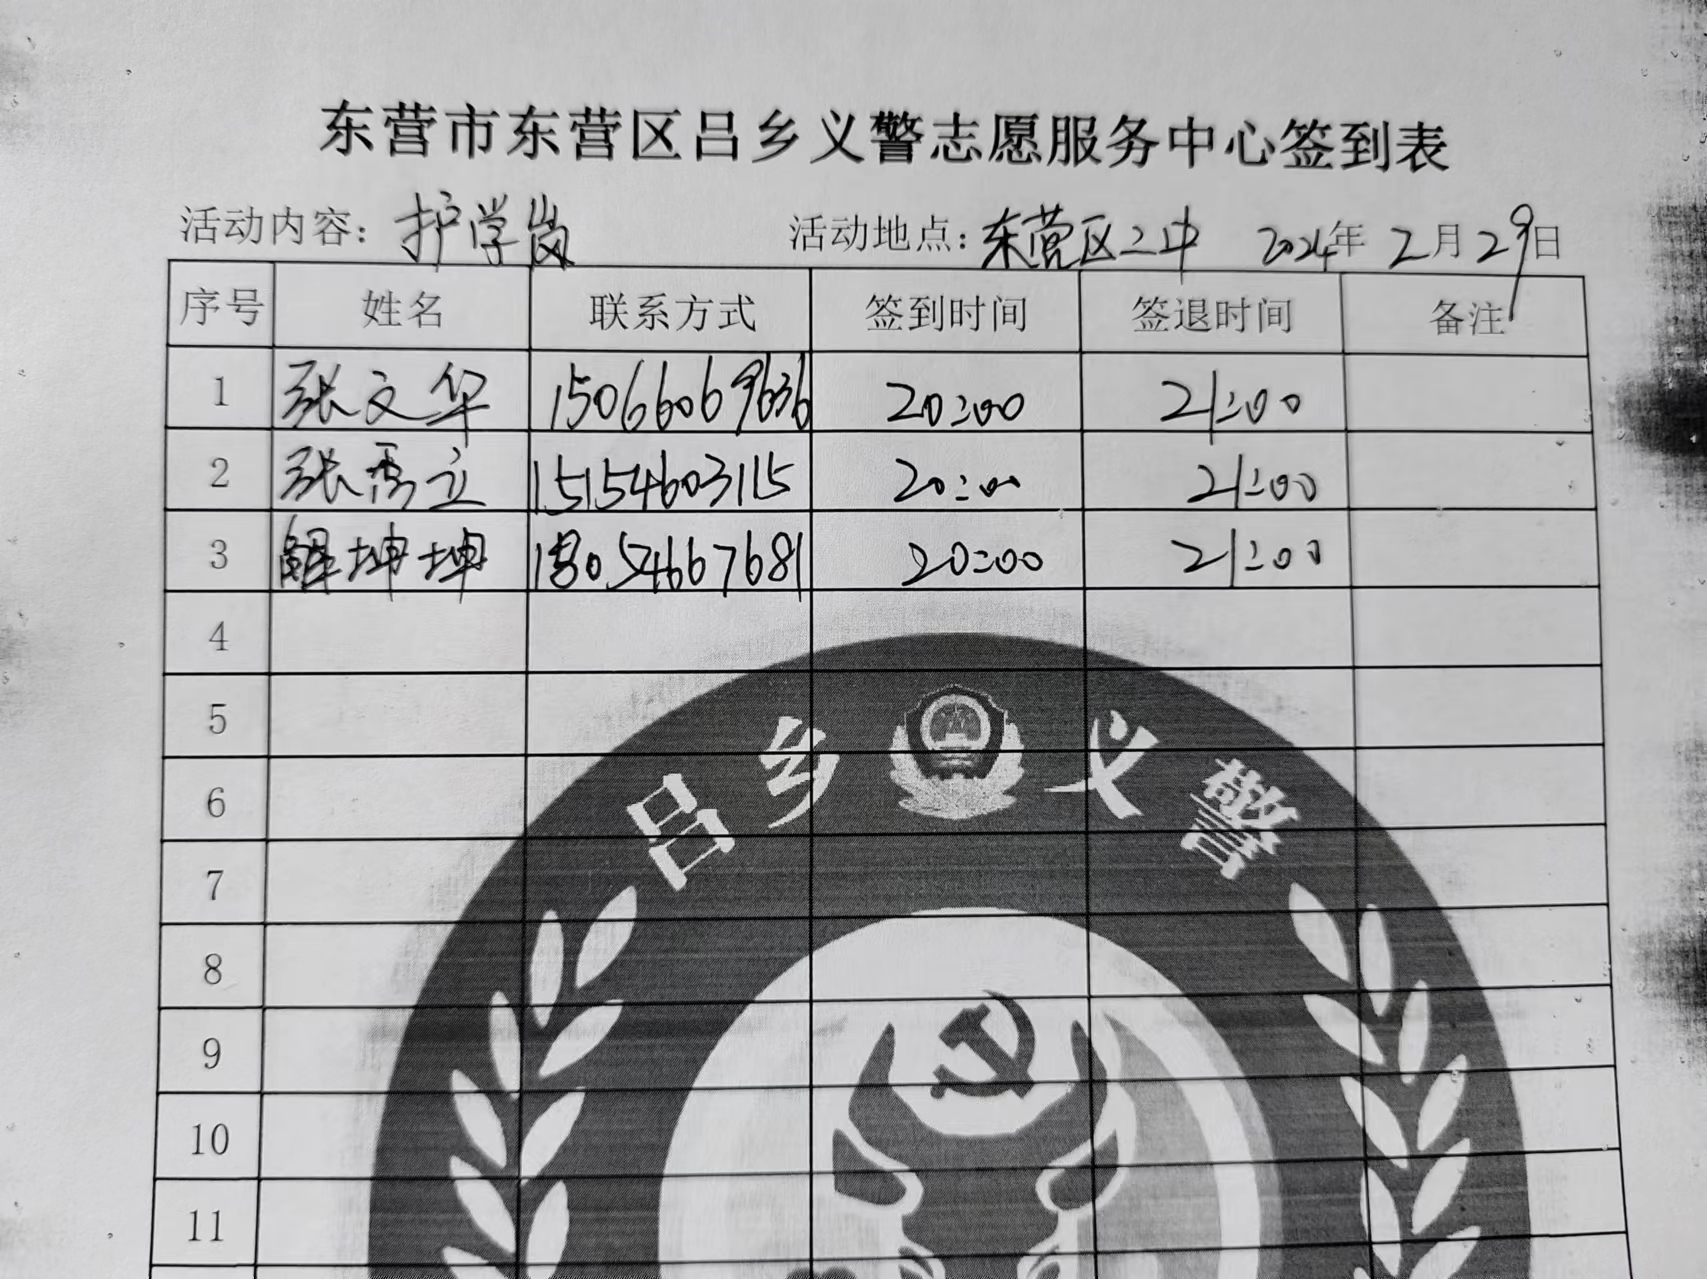 东营市东营区吕乡义警志愿服务中心签到表
活动内容：护学岗 活动地点：东营区二中 2024年2月29日
序号 姓名 联系方式 签到时间 签退时间 备注
1 张文华 15066069636 20:00 21:00
2 张秀立 15154603115 20:00 21:00
3 坤坤 18054667681 20:00 21:00
4
5
6
7
8
9
10
11
吕乡义警